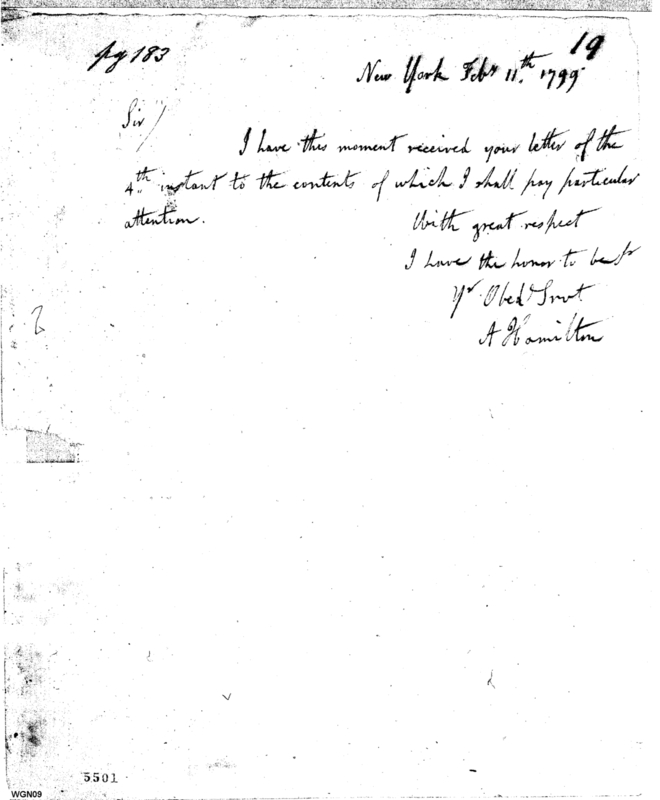 pg 183
19
New York Feby 11.th 1799
Sir /
I have this moment received your letter of the
4.th instant to the contents of which I shall pay particular
attention.
With great respect
I have the honor to be Sr
Yr Obedt Servt
A Hamilton
5501
WGN09